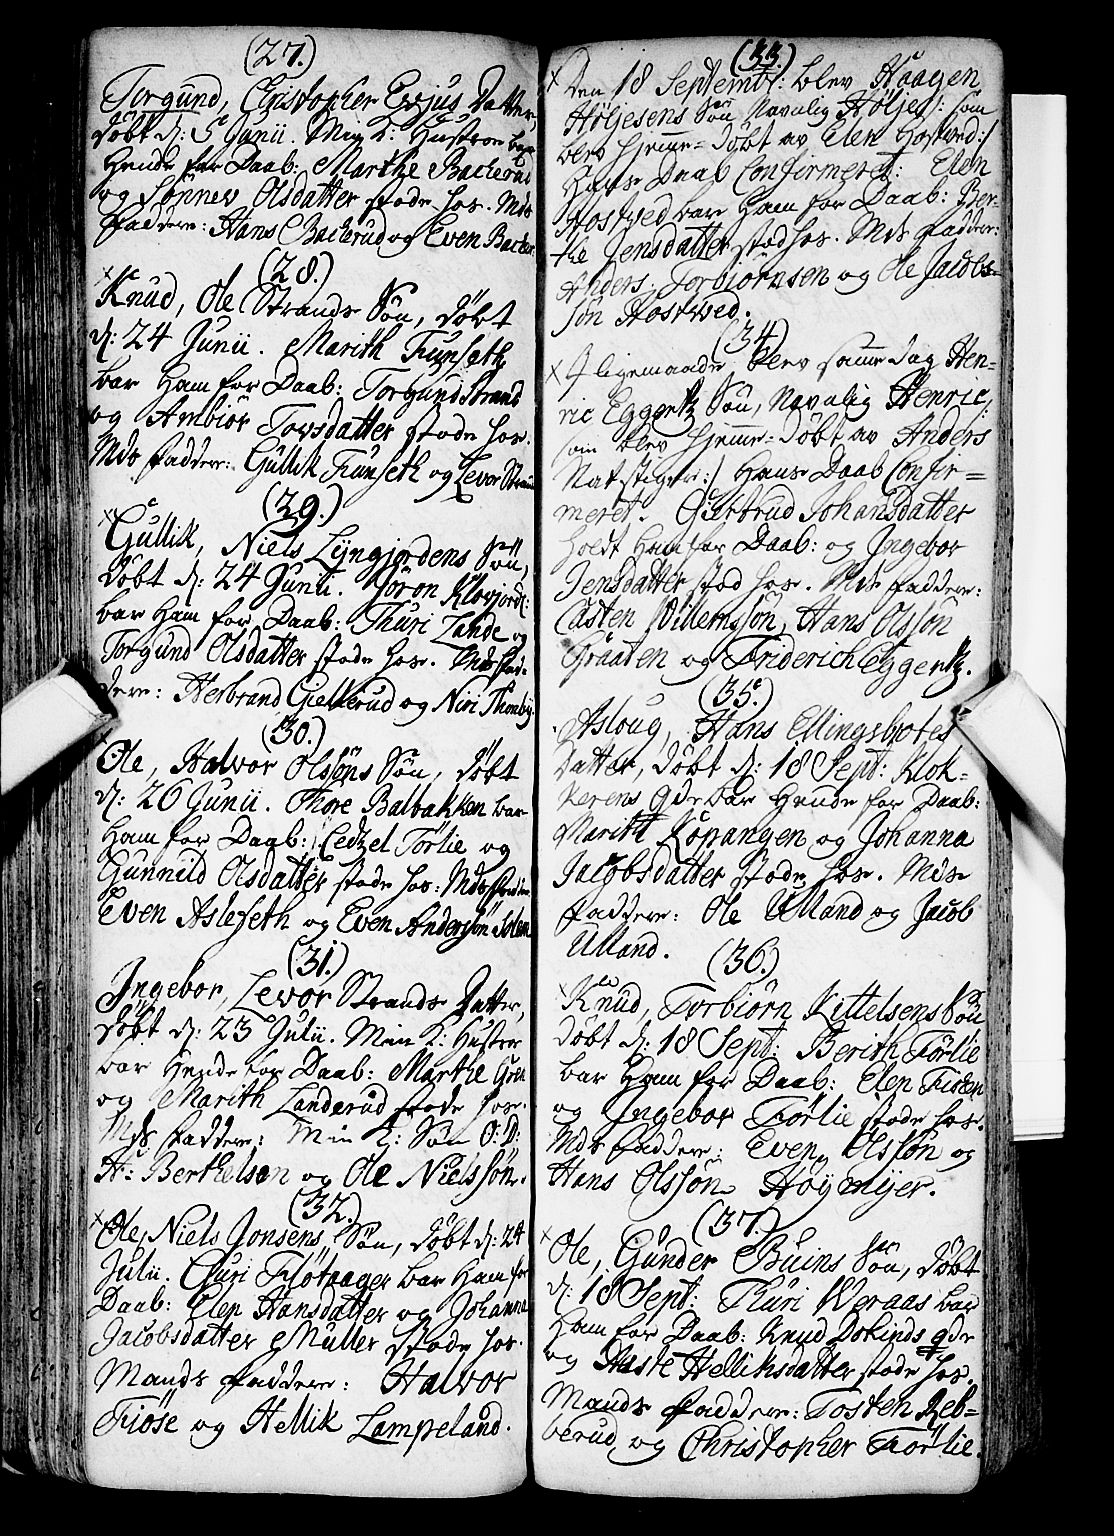 (27.)
Torgund, Christopher Evjus Datter,
döbt d: 5 Junii. Min K: Hustroe bar
Hende for Daab: Marthe Backerud
og Sønnev Olsdatter stode hos. Mds
Faddere: Hans Backerud og Even Backer:
(28.)
x Knud, Ole Strands Sön, döbt
d: 24 Junii. Marith Funseth
bar Ham for Daab: Torgund Strand
og Ambiör Tovsdatter stode hos.
Mds Faddere: Gullik Funseth og Levor Strand
(29.)
x Gullik, Niels Lÿngjordens Sön,
döbt d: 24 Junii. Jöron Klovjord:
bar Ham for Daab: Thuri Lande og
Torgund Olsdatter stode hos. Mds Fad-
dere: Herbrand Gielkerud og Niri Thombÿ.
(30.)
x Ole, Halvor Olssöns Sön, döbt
d: 26 Junii. Thore Balbakken bar
Ham for Daab: Cedzel Törlie og
Gunnild Olsdatter stode hos: Mds Faddere
Even Aslefeth og Even Andersön
(31.)
Ingebor, Levor Strands Datter,
döbt d: 23 Julii. Min K: Hustroe
bar Hende for Daab: Marthe Gren
og Marith Landerud stode hos.
Mds Faddere: Min K: Sön O: D:
H: Berthelsen og Ole Nielssön.
(32.)
x Ole, Niels Jonsens Sön, döbt d: 24
Julii. Guri Flötaager bar Ham for
Daab: Elen Hansdatter og Johanna
Jacobsdatter Müller stode hos.
Mands Faddere: Halvor
Fiöse og Hellik Lampeland.
(33.)
x Den 18 Septembr: blev Haagen
Höljesens Sön Navnlig Höljes /: som
blev hjemme-döbt av Elen Hostved :/
Hans Daab Confirmeret: Elen
Hostved bar Ham for Daab: Ber-
the Jensdatter stod hos. Mds Faddere:
Anders Torbiörnsen og Ole Jacobs-
sön Hostved.
(34.)
x I ligemaade blev samme dag Hen-
ric Eggertz Sön, Navnlig Henric,
som blev hjemme-döbt av Anders
Natstiger :/ Hans Daab Confir-
meret. Giertrud Johansdatter
holdt Ham for Daab: og Ingebor
Jensdatter stod hos. Mds Faddere:
Casten Willemssön, Hans Olssön
Graaten og Friderich Eggertz.
(35.)
Asloug, Hans Ellingsbotes
Datter, döbt d: 18 Sept: Klok-
kerens Qde bar Hende for Daab:
Marith Kopangen og Johanna
Jacobsdatter stode hos. Mds
Faddere: Ole Ulland og Jacob
Ulland.
(36.)
x Knud, Torbiörn Kittelsens Sön
döbt d: 18 Sept: Berith Törlie
bar Ham for Daab: Elen Fisten
og Ingebor Törlie stode hos.
Mds Faddere: Even Olssön og
Hans Olssön Höymÿer.
(37.)
x Ole, Gunder Buins Sön, döbt
d: 18 Sept: Thuri Weraas bar
Ham for Daab: Knud Dokinds qde
og Aaste Helliksdatter stode hos.
Mands Faddere: Tosten Reb-
berud og Christopher Törlie.